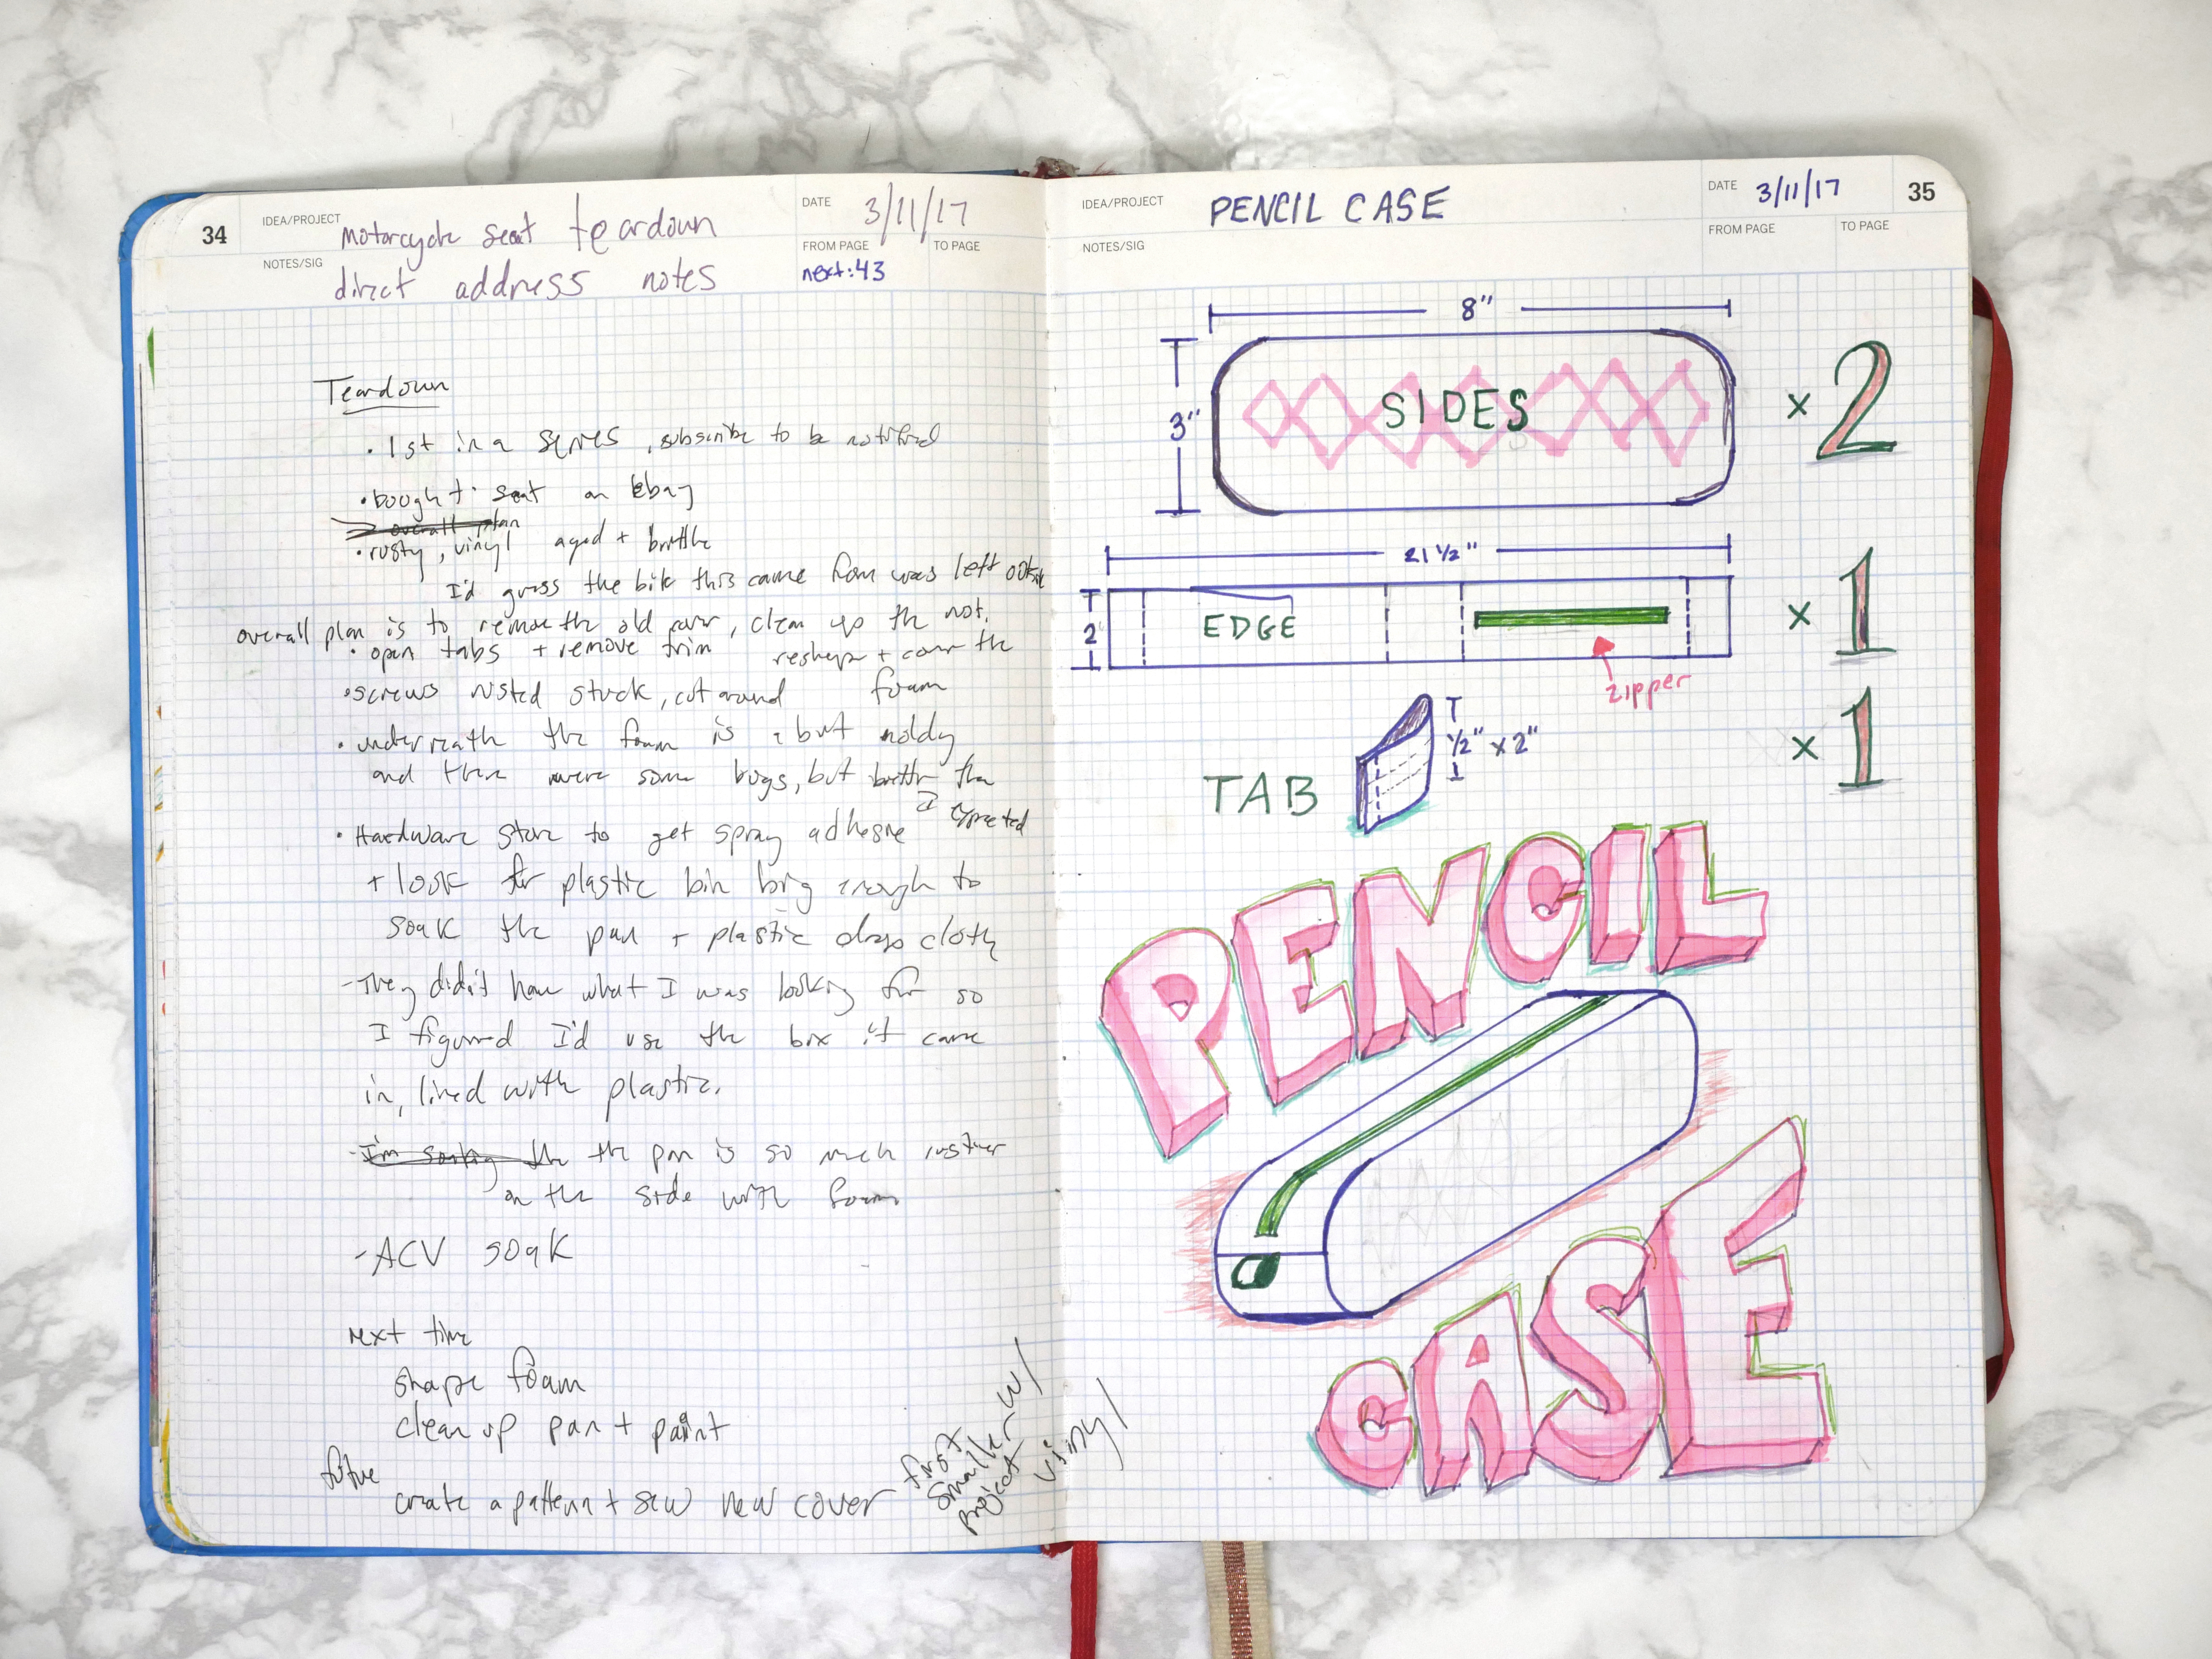 34
IDEA/PROJECT
Motorcycle seat teardown
NOTES/SIG
direct address notes
DATE
3/11/17
FROM PAGE
TO PAGE
next: 43
Teardown
• 1st in a series, subscribe to be notified
• bought seat on Ebay
overall plan
• rusty, vinyl aged + brittle
I'd guess the bike this came from was left outside
overall plan is to remove the old cover, clean up the
• open tabs + remove trim
reshape + cover the
foam
• screws rusted stuck, cut around
• underneath the foam is a but moldy
and there were some bugs, but better than
I expected
• Hardware store to get spray adhesive
+ look for plastic bin big enough to
soak the pan + plastic drop cloth
- They didn't have what I was looking for so
I figured I'd use the box it came
in, lined with plastic.
- I'm the the pan is so much rustier
on the side with foam
- ACV soak
next time
shape foam
clean up pan + paint
future
create a pattern + sew new cover
first
smaller
project w/
vinyl
IDEA/PROJECT
PENCIL CASE
NOTES/SIG
DATE
3/11/17
35
FROM PAGE
TO PAGE
8"
3"
SIDES
x 2
21 ½"
2
EDGE
x 1
zipper
TAB
½" x 2"
x 1
PENCIL
CASE